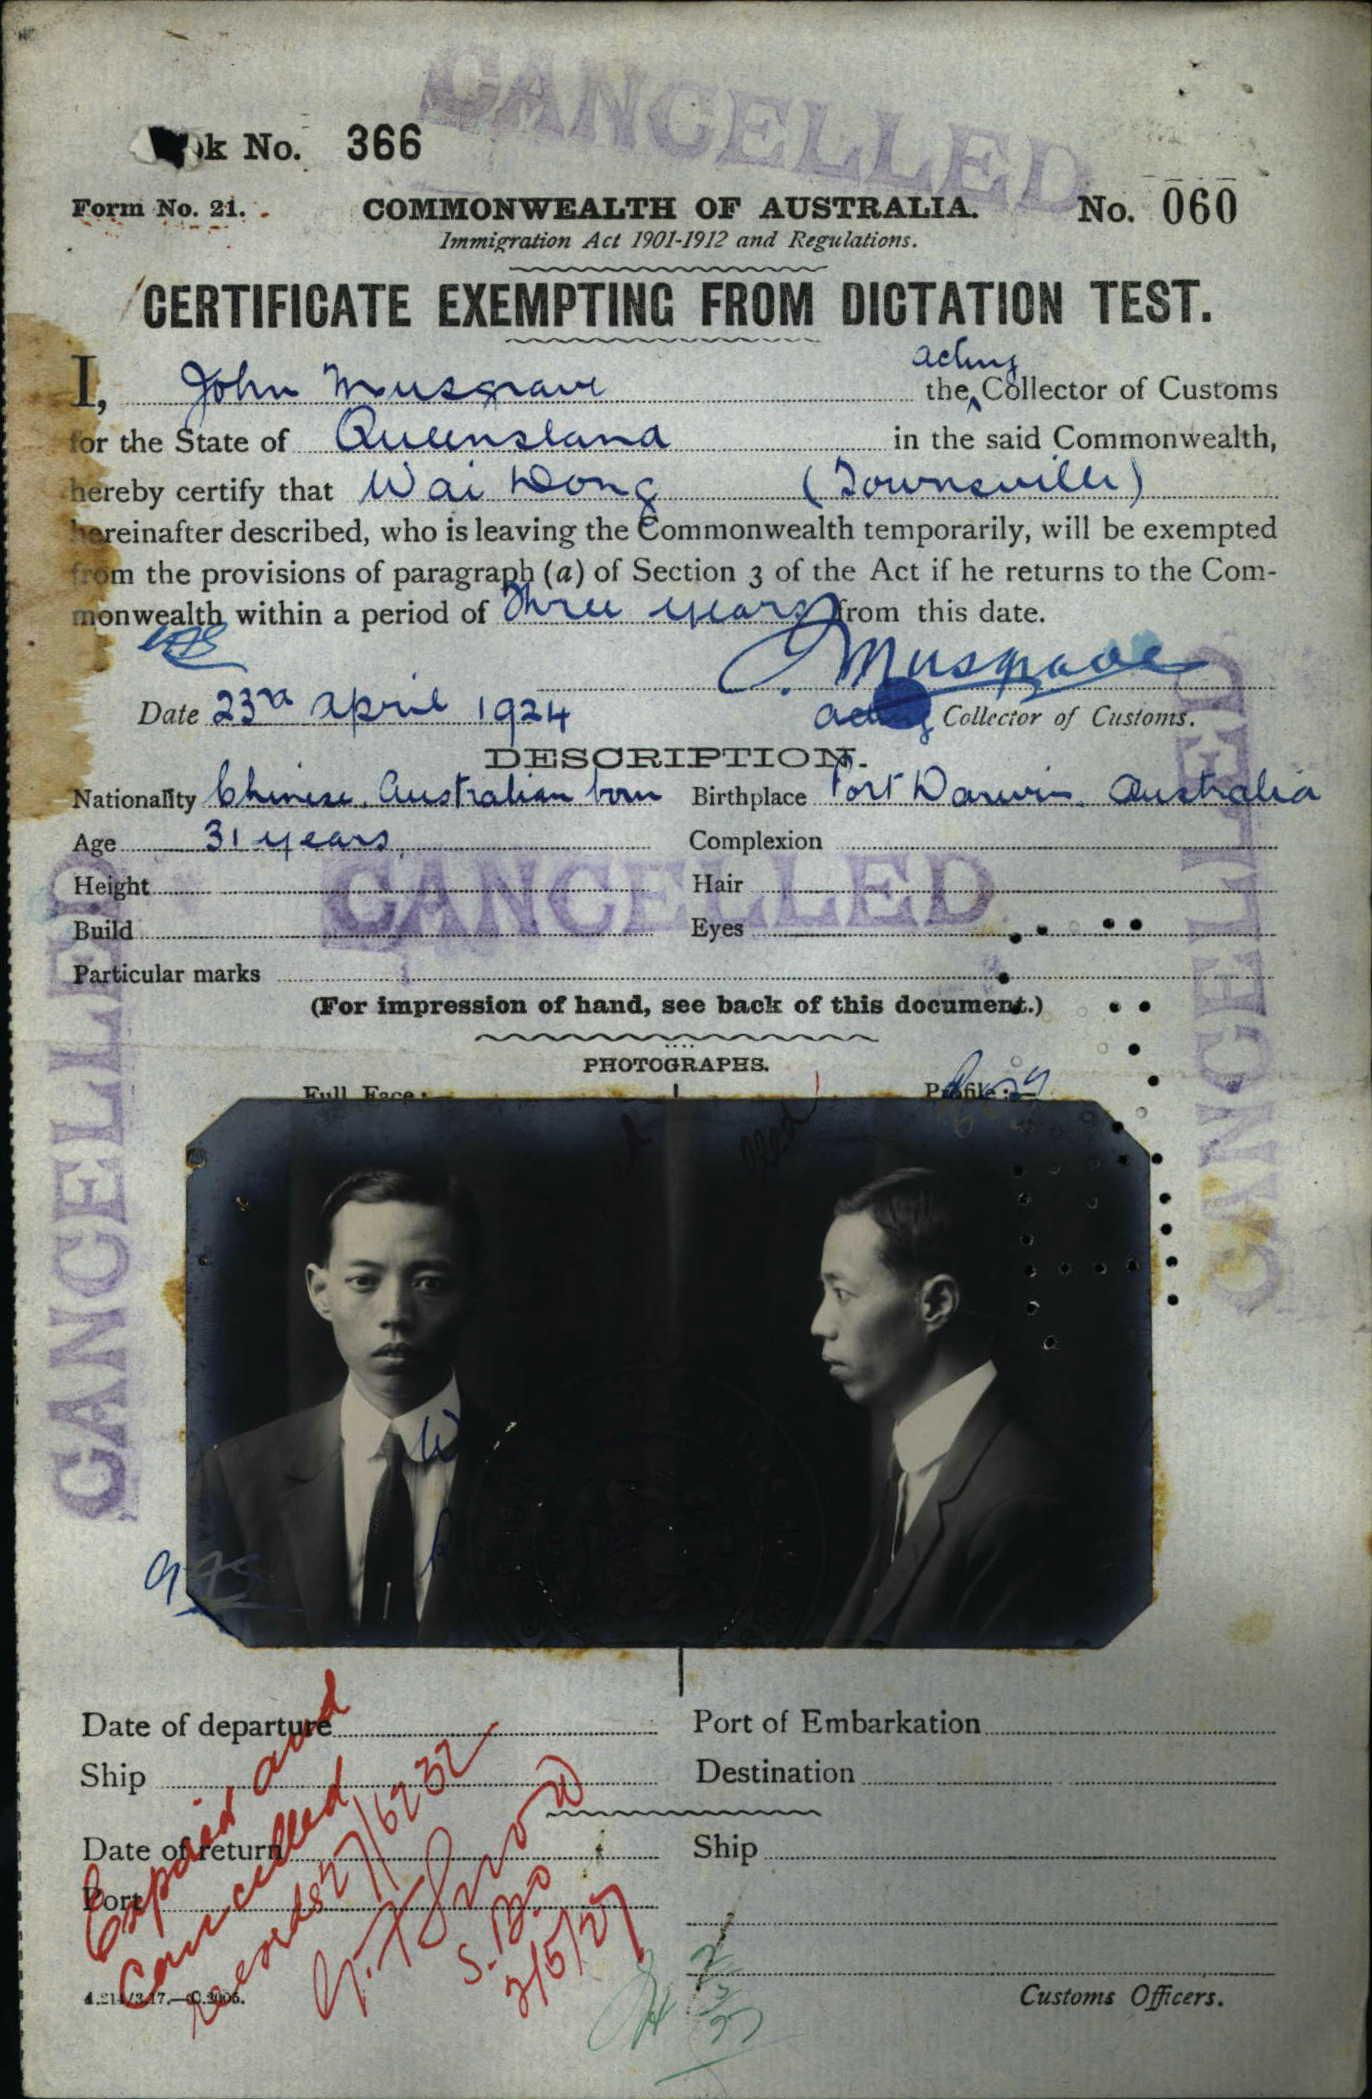 CANCELLED
k No. 366
Form No. 21. COMMONWEALTH OF AUSTRALIA. No. 060
Immigration Act 1901-1912 and Regulations.
CERTIFICATE EXEMPTING FROM DICTATION TEST.
acting
I, John Musgrave the Collector of Customs
for the State of Queensland in the said Commonwealth,
hereby certify that Wai Dong (Townsville)
hereinafter described, who is leaving the Commonwealth temporarily, will be exempted
from the provisions of paragraph (a) of Section 3 of the Act if he returns to the Com-
monwealth within a period of Three years from this date.
J Musgrave
Date 23rd April 1924 acting Collector of Customs.
DESCRIPTION.
Nationality Chinese. Australian born Birthplace Port Darwin. Australia
Age 31 years. Complexion
CANCELLED
Height Hair
Build Eyes
Particular marks
(For impression of hand, see back of this document.)
PHOTOGRAPHS.
Full Face: Profile:
CANCELLED
CANCELLED
Date of departure Port of Embarkation
Ship Destination
Date of return Ship
Port
Expired and
Cancelled
records 27/6232
2/5/27
Customs Officers.